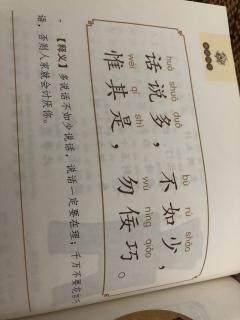 huà shuō duō bù rú shǎo
话说多，不如少，
wéi qí shì wù nìng qiǎo
惟其是，勿佞巧。
【释义】多说话不如少说话，说话一定要在理；千万不要花言巧
语，否则人家就会讨厌你。